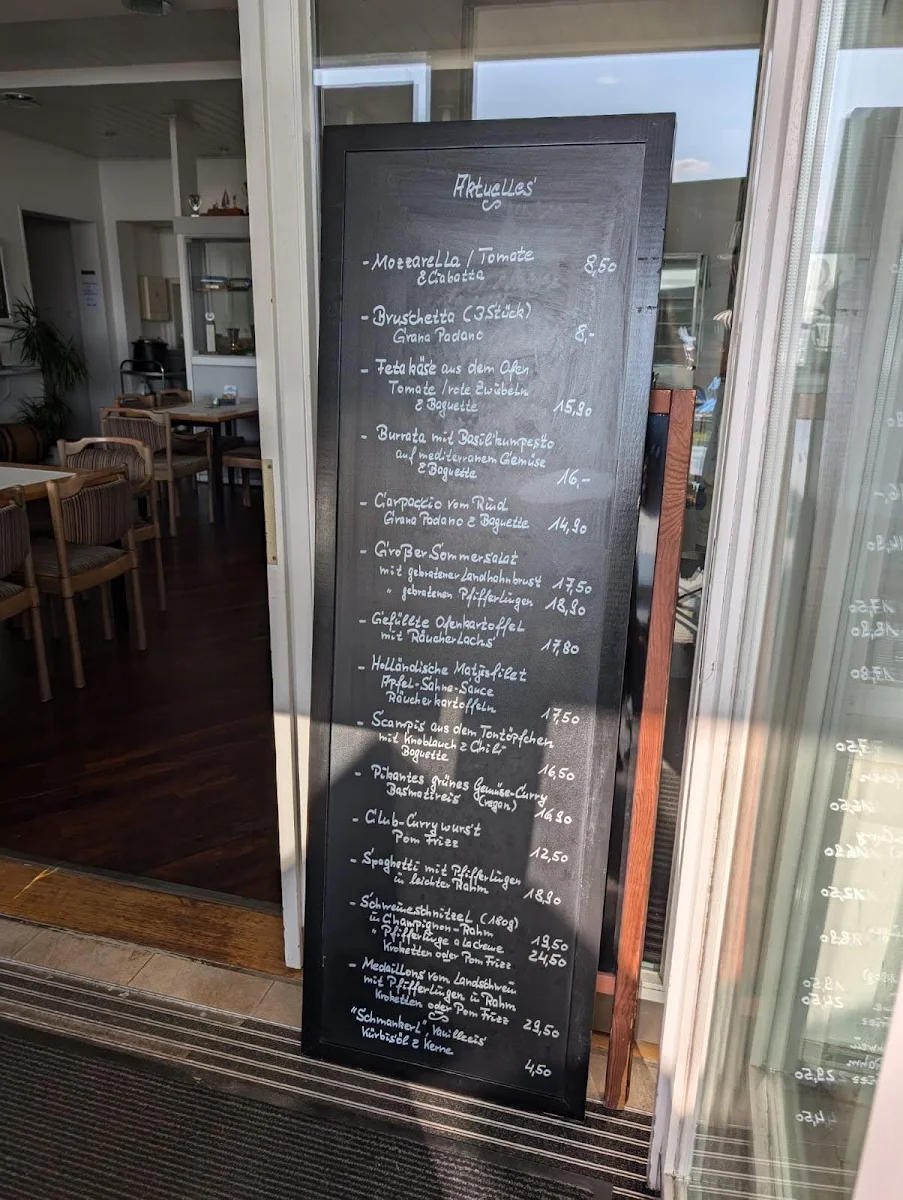 Aktuelles
- Mozzarella / Tomate 8,50
& Ciabatta
- Bruschetta (3 Stück)
Grana Padano 8,-
- Fetakäse aus dem Ofen
Tomate / rote Zwiebeln
& Baguette 15,90
- Burrata mit Basilikumpesto
auf mediterranem Gemüse
& Baguette 16,-
- Carpaccio vom Rind
Grana Padano & Baguette 14,90
- Großer Sommersalat
mit gebratener Landhahnbrust 17,50
" gebratenen Pfifferlingen 18,90
- Gefüllte Ofenkartoffel
mit Räucherlachs 17,80
- Holländische Matjesfilet
Apfel-Sahne-Sauce
Räucherkartoffeln 17,50
- Scampis aus dem Tontöpfchen
mit Knoblauch & Chili
Baguette 16,50
- Pikantes grünes Gemüse-Curry
Basmatireis (vegan) 16,90
- Club-Currywurst
Pom Frizz 12,50
- Spaghetti mit Pfifferlingen
in leichter Rahm 18,90
- Schweineschnitzel (180g)
in Champignon-Rahm 19,50
" Pfifferlinge a la creme 24,50
Kroketten oder Pom Frizz
- Medaillons vom Landschwein
mit Pfifferlingen in Rahm
Kroketten oder Pom Frizz 29,50
"Schmankerl" Vanilleeis
Kürbisöl & Kerne 4,50